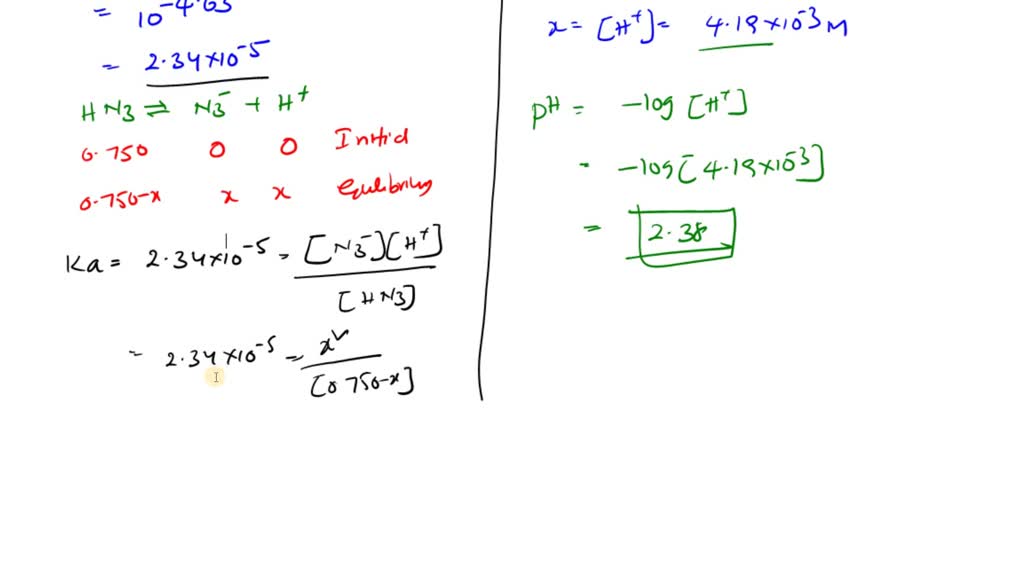 = 10^-4.63
= 2.34×10^-5
HN3 ⇌ N3^- + H^+
0.750 0 0 Initial
0.750-x x x Equilibrium
Ka = 2.34×10^-5 = [N3^-][H^+] / [HN3]
= 2.34×10^-5 = x^2 / [0.750-x]
x = [H^+] = 4.19×10^-3 M
pH = -log [H^+]
= -log[4.19×10^-3]
= 2.38